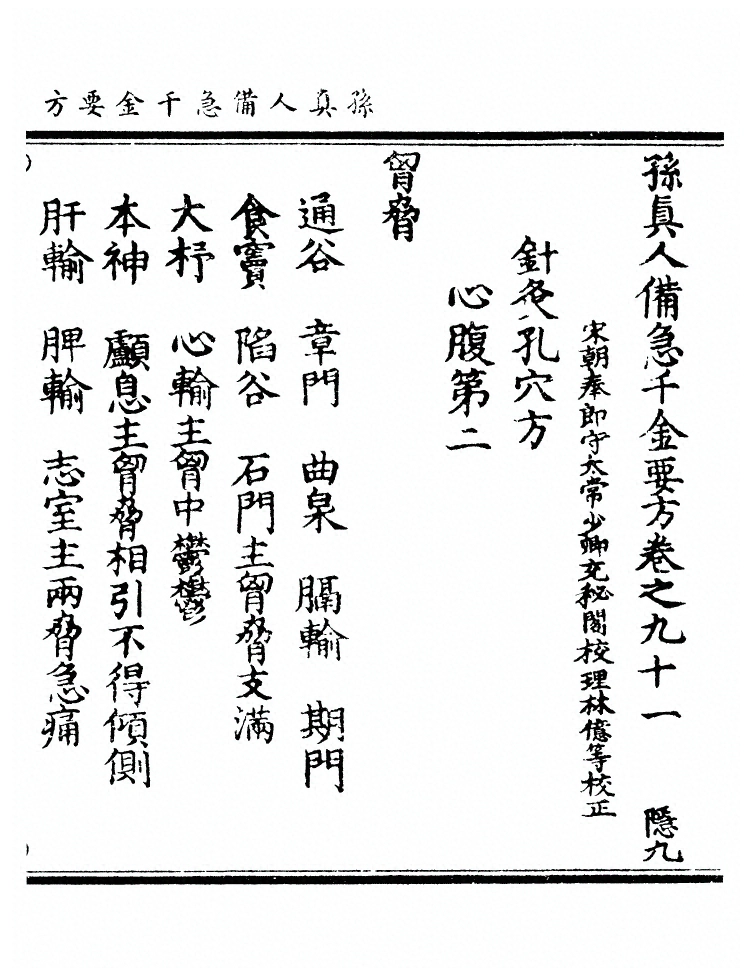 孫真人備急千金要方
孫真人備急千金要方卷之九十一　隱九
宋朝奉郎守太常少卿充秘閣校理林億等校正
針灸孔穴方
心腹第二
胷脅
通谷　章門　曲泉　膈輸　期門
食竇　陷谷　石門主胷脅支滿
大杼　心輸主胷中鬱鬱
本神　顱息主胷脅相引不得傾側
肝輸　脾輸　志室主兩脅急痛